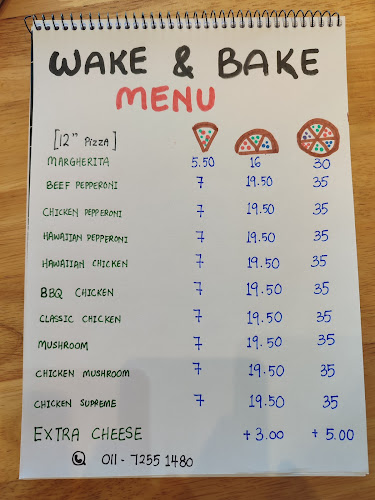 WAKE & BAKE
MENU
[12" PIZZA]
MARGHERITA 5.50 16 30
BEEF PEPPERONI 7 19.50 35
CHICKEN PEPPERONI 7 19.50 35
HAWAIIAN PEPPERONI 7 19.50 35
HAWAIIAN CHICKEN 7 19.50 35
BBQ CHICKEN 7 19.50 35
CLASSIC CHICKEN 7 19.50 35
MUSHROOM 7 19.50 35
CHICKEN MUSHROOM 7 19.50 35
CHICKEN SUPREME 7 19.50 35
EXTRA CHEESE +3.00 +5.00
011-7255 1480